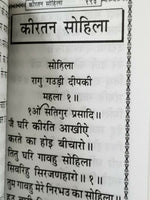 कीरतन सोहिला
कीरतन सोहिला
सोहिला
रागु गउड़ी दीपकी
महला १॥
१ओं सतिगुर प्रसादि॥
जै घरि कीरति आखीऐ
करते का होइ बीचारो॥
तितु घरि गावहु सोहिला
सिवरिहु सिरजणहारो॥१॥
तुम गावहु मेरे निरभउ का सोहिला॥